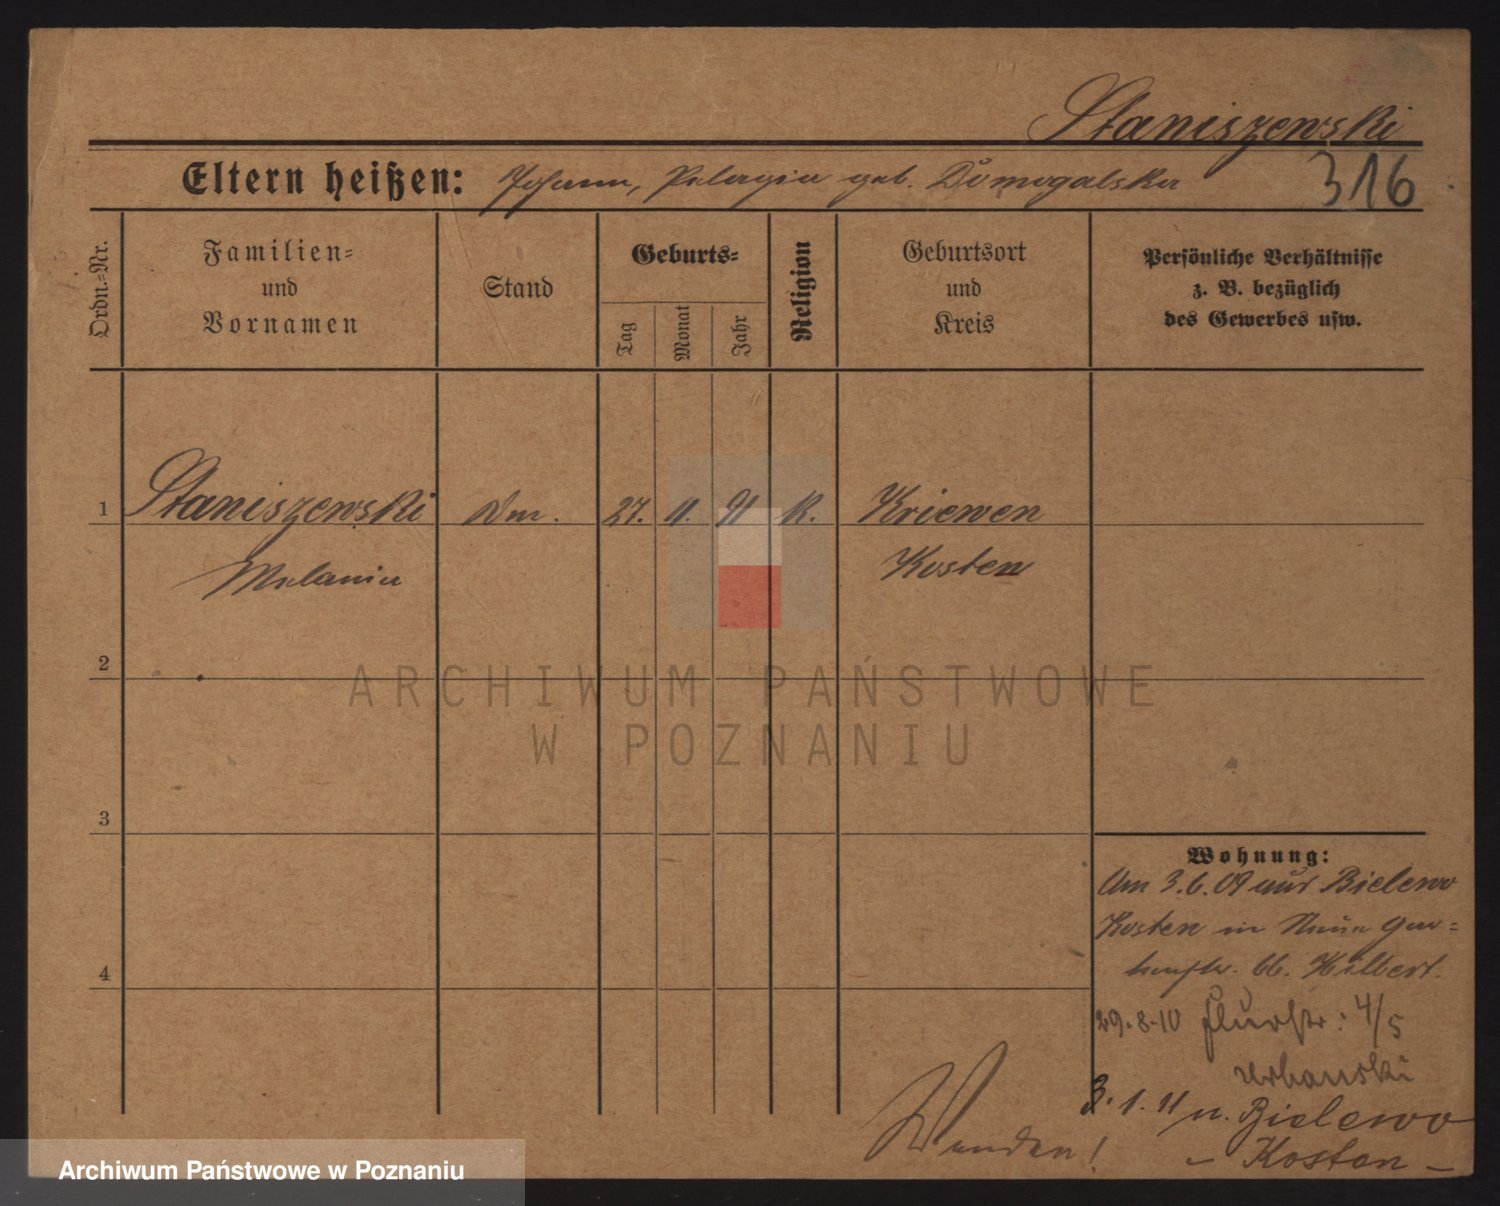 Staniszewski
Eltern heißen: Johann, Pelagia geb. Domogalska
316
Ordn.=Nr.
Familien=
und
Vornamen
Stand
Geburts=
Tag
Monat
Jahr
Religion
Geburtsort
und
Kreis
Persönliche Verhältnisse
z. B. bezüglich
des Gewerbes usw.
1
Staniszewski
27. 11. 91 K.
Kriewen
Melania
Kosten
2
ARCHIWUM PAŃSTWOWE
W POZNANIU
3
4
Wohnung:
Am 3.6.09 aus Bielewo
Kosten in
66. Hilbert.
29.8.10 Flurstr: 4/5
Urbanski
3.1.11 n. Bielewo
- Kosten -
Wenden!
Archiwum Państwowe w Poznaniu